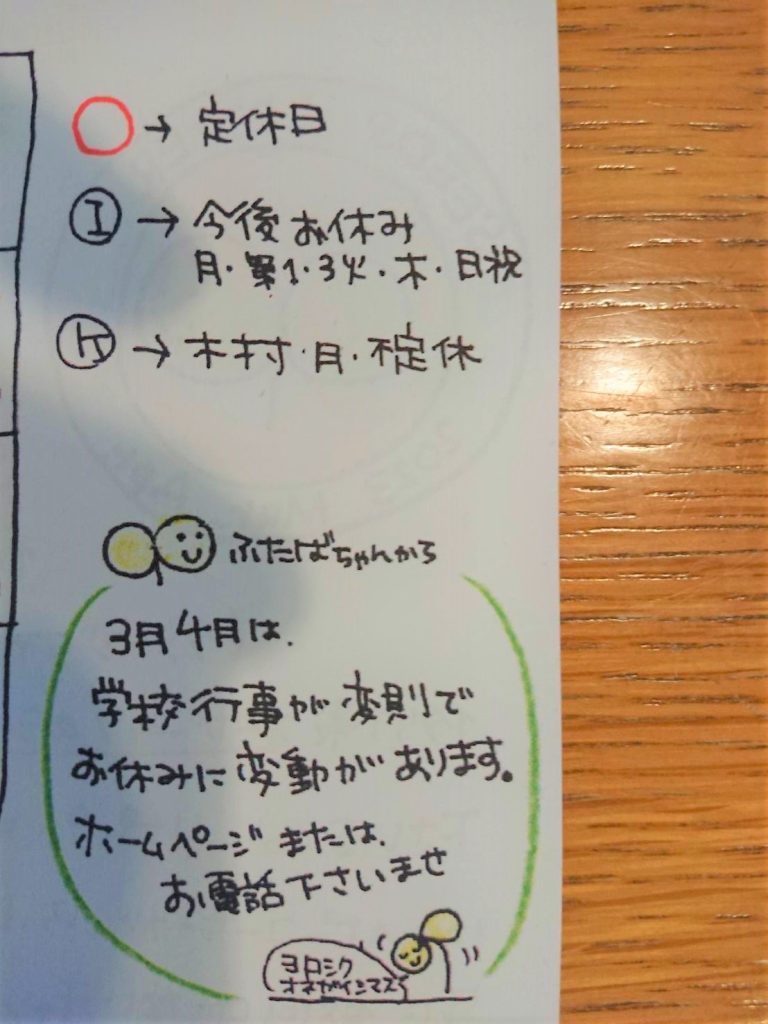 → 定休日
エ → 今後お休み
月・第1・3火・木・日祝
ケ → 木村・月・不定休
ふたばちゃんから
3月4月は、
学校行事が変則で
お休みに変動があります。
ホームページまたは、
お電話下さいませ
ヨロシク
オネガイシマス